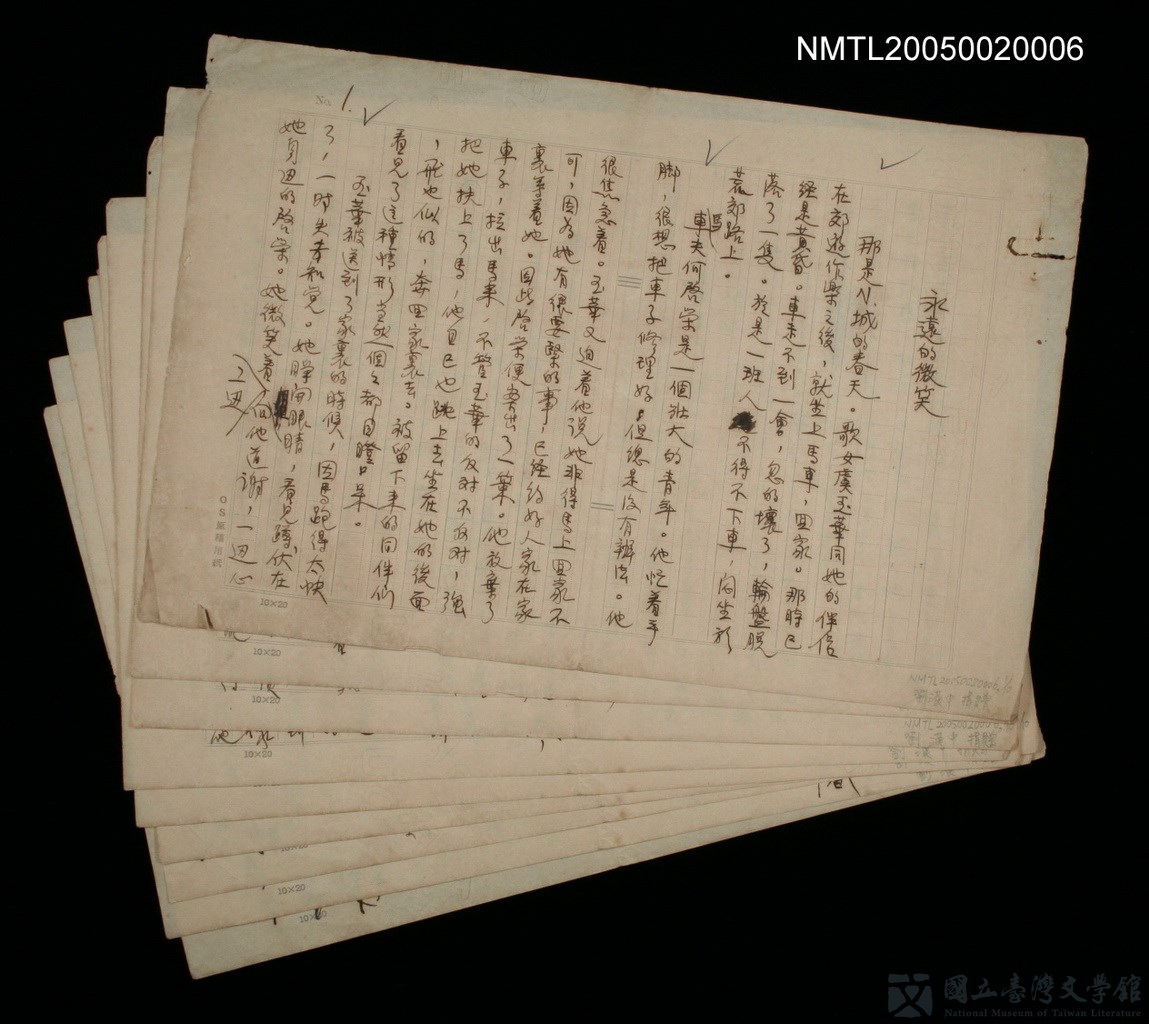 NMTL20050020006
No. 1.
永遠的微笑
那是N.城的春天。歌女虞玉華同她的伴侶
在郊遊作樂之後,就坐上馬車,回家。那時已
經是黃昏。車走不到一會,忽的壞了,輪盤脫
落了一隻。於是一班人不得不下車,向坐於
荒郊路上。
馬車夫何啓榮是一個壯大的青年。他忙着手
脚,很想把車子修理好,但總是没有辦法。他
很焦急着。玉華又迫着他說她非得馬上回家不
可,因為她有很要緊的事,已經約好人家在家
裏等着她。因此啓榮便案出了一策。他放棄了
車子,拉出馬來,不管玉華的反對不反對,強
把她扶上了馬,他自已也跳上去坐在她的後面
,飛也似的,奔回家裏去。被留下來的同伴们
看見了这種情形当家一個々都目瞪口呆。
玉華被送到了家裏的時候,因馬跑得太快
了,一時失去知覚。她睜開眼睛,看見蹲伏在
她身辺的啓榮。她微笑着向他道謝,一辺心
工辺
10×20
10×20
10×20
10×20
10×20
10×20
NMTL20050020006
劉漢中 捐贈
國立臺灣文學館
National Museum of Taiwan Literature